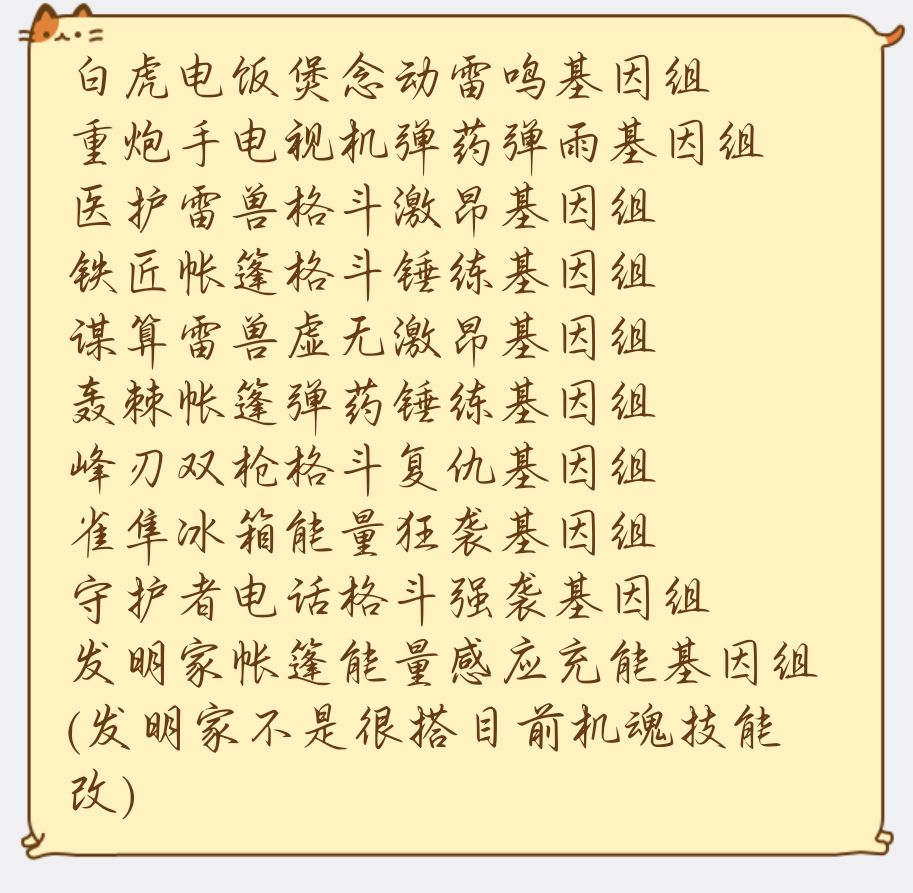 白虎电饭煲念动雷鸣基因组
重炮手电视机弹药弹雨基因组
医护雷兽格斗激昂基因组
铁匠帐篷格斗锤练基因组
谋算雷兽虚无激昂基因组
轰棘帐篷弹药锤练基因组
峰刃双枪格斗复仇基因组
雀隼冰箱能量狂袭基因组
守护者电话格斗强袭基因组
发明家帐篷能量感应充能基因组
(发明家不是很搭目前机魂技能
改)